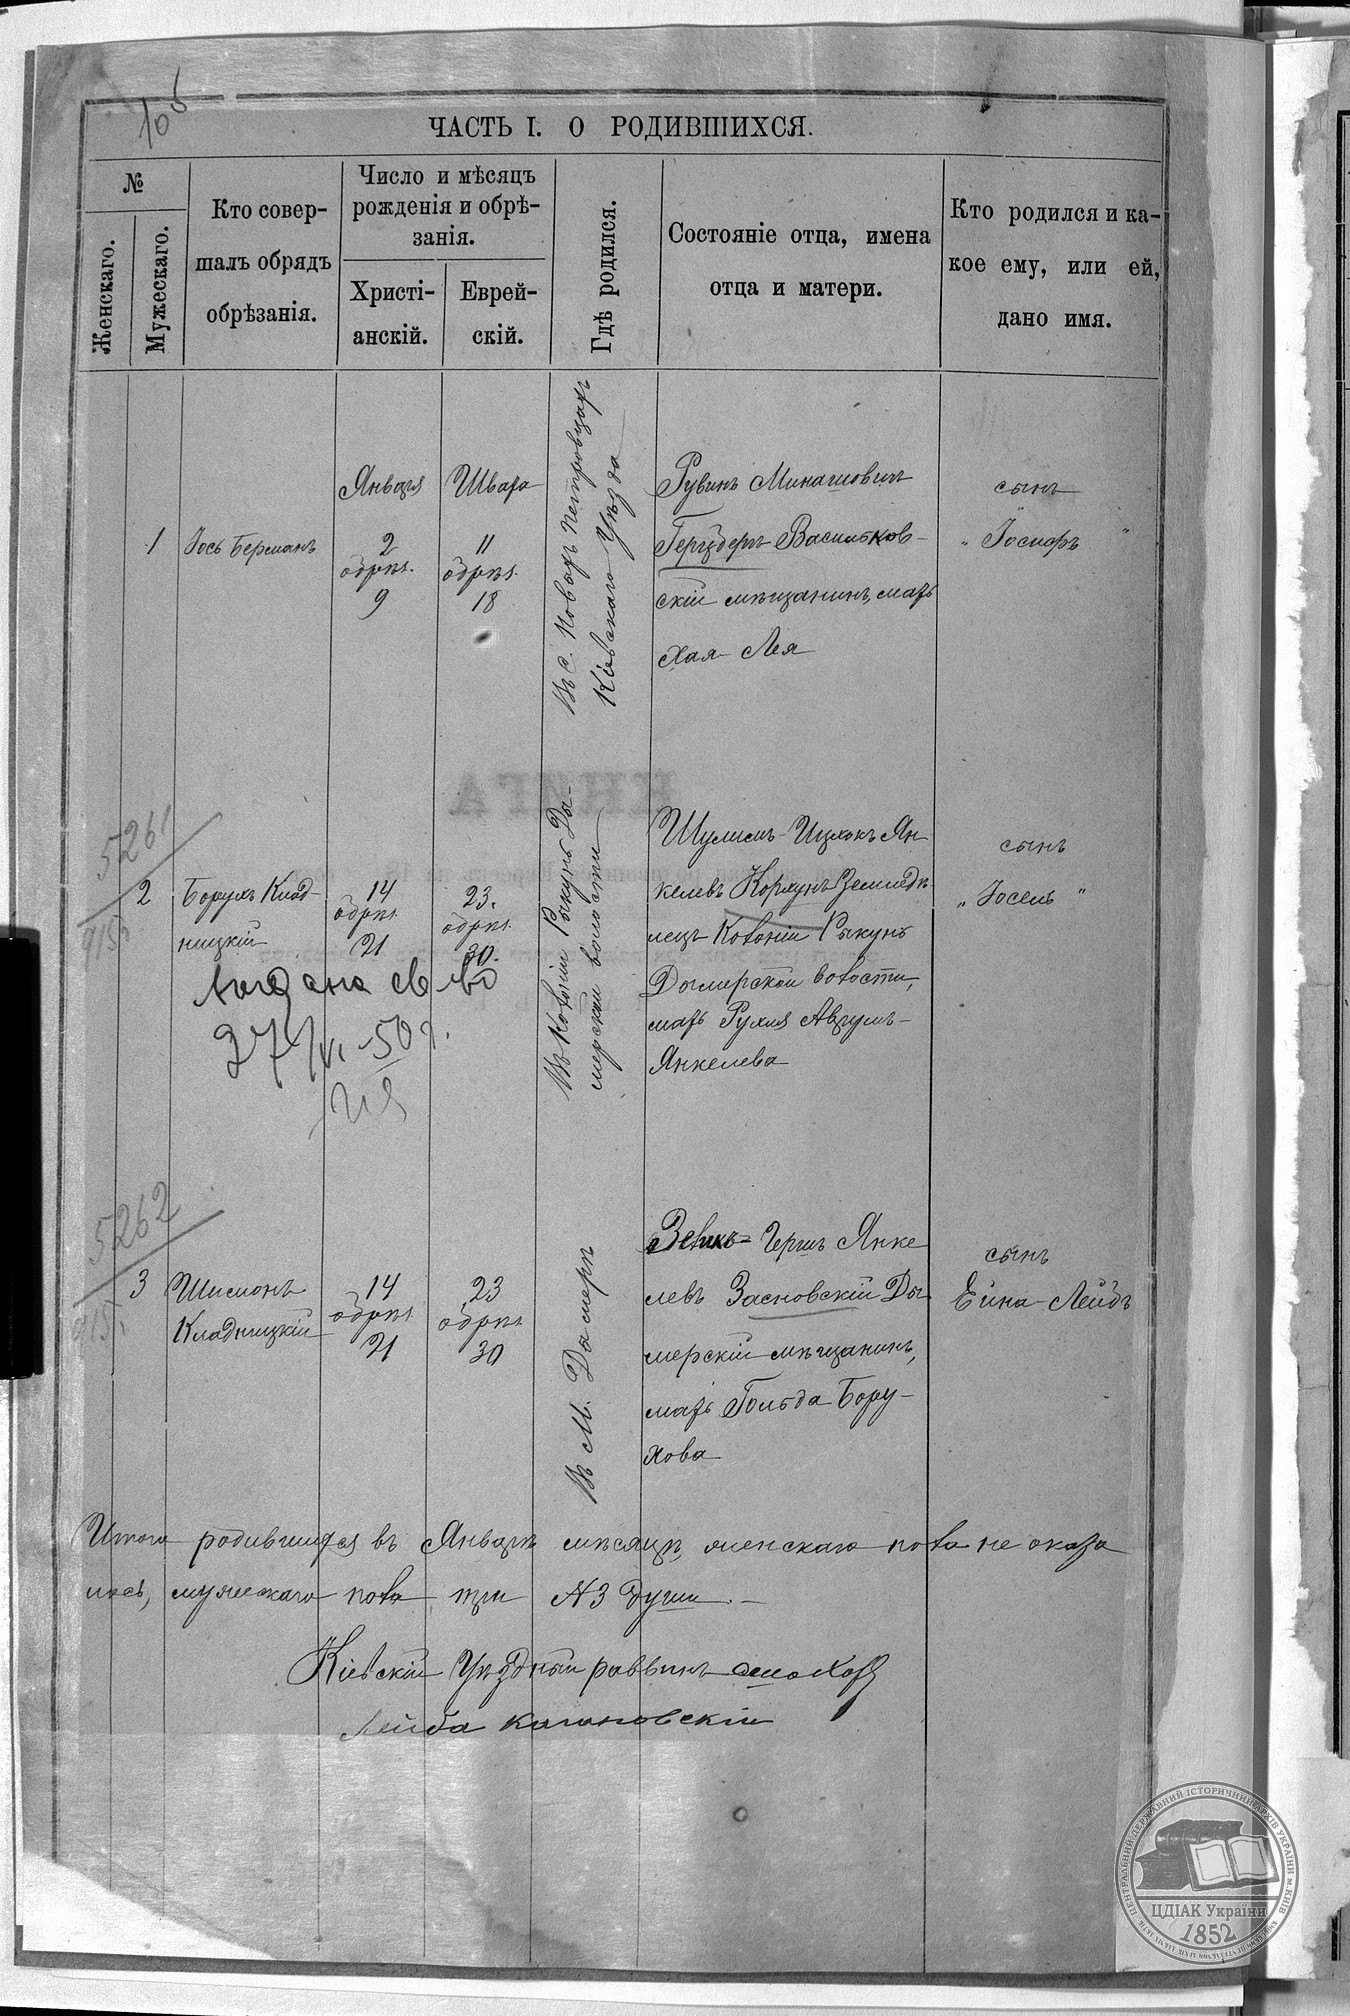 ЧАСТЬ I. О РОДИВШИХСЯ.
№
Женскаго.
Мужескаго.
Кто совер-
шалъ обрядъ
обрѣзанія.
Число и мѣсяцъ
рожденія и обрѣ-
занія.
Христі-
анскій.
Еврей-
скій.
Гдѣ родился.
Состояніе отца, имена
отца и матери.
Кто родился и ка-
кое ему, или ей,
дано имя.
1
Іось Берманъ
Января
2
обрѣз.
9
Швата
11
обрѣз.
18
Въ с. Новыхъ Петровцахъ
Кіевскаго Уѣзда
Рувинъ Минашовичъ
Васильков-
скій мѣщанинъ, мать
Хая-Лея
сынъ
„Іосифъ"
5261
2
БорухъКлад-
ницкій
14
обрѣз.
21
23.
обрѣз.
30.
Въ Колоніи Рыкунь Ды-
мерской волости
Шулимъ-Ицхокъ Ян-
келевъ Корсунъ Земледѣ
лецъ Колоніи Рыкунь
Дымерской волости,
мать Рухля
Янкелева
сынъ
„Іосель"
27/VI-50г.
5262
3
Шимонъ
Кладницкій
14
обрѣз.
21
23
обрѣз.
30
Въ М. Дымерѣ
Гершъ Янке
левъ Засновскій Ды
мерскій мѣщанинъ,
мать Гольда Бору-
хова
сынъ
Ейна-Лейбъ
Итого родившихся въ Январѣ мѣсяцѣ, женскаго пола не оказа
лось, мужескаго пола три №3 души.
Кіевскій Уѣздный раввинъ
Лейба Кагановскій
ЦЕНТРАЛЬНИЙ ДЕРЖАВНИЙ ІСТОРИЧНИЙ АРХІВ УКРАЇНИ м. КИЇВ
ЦДІАК України
1852